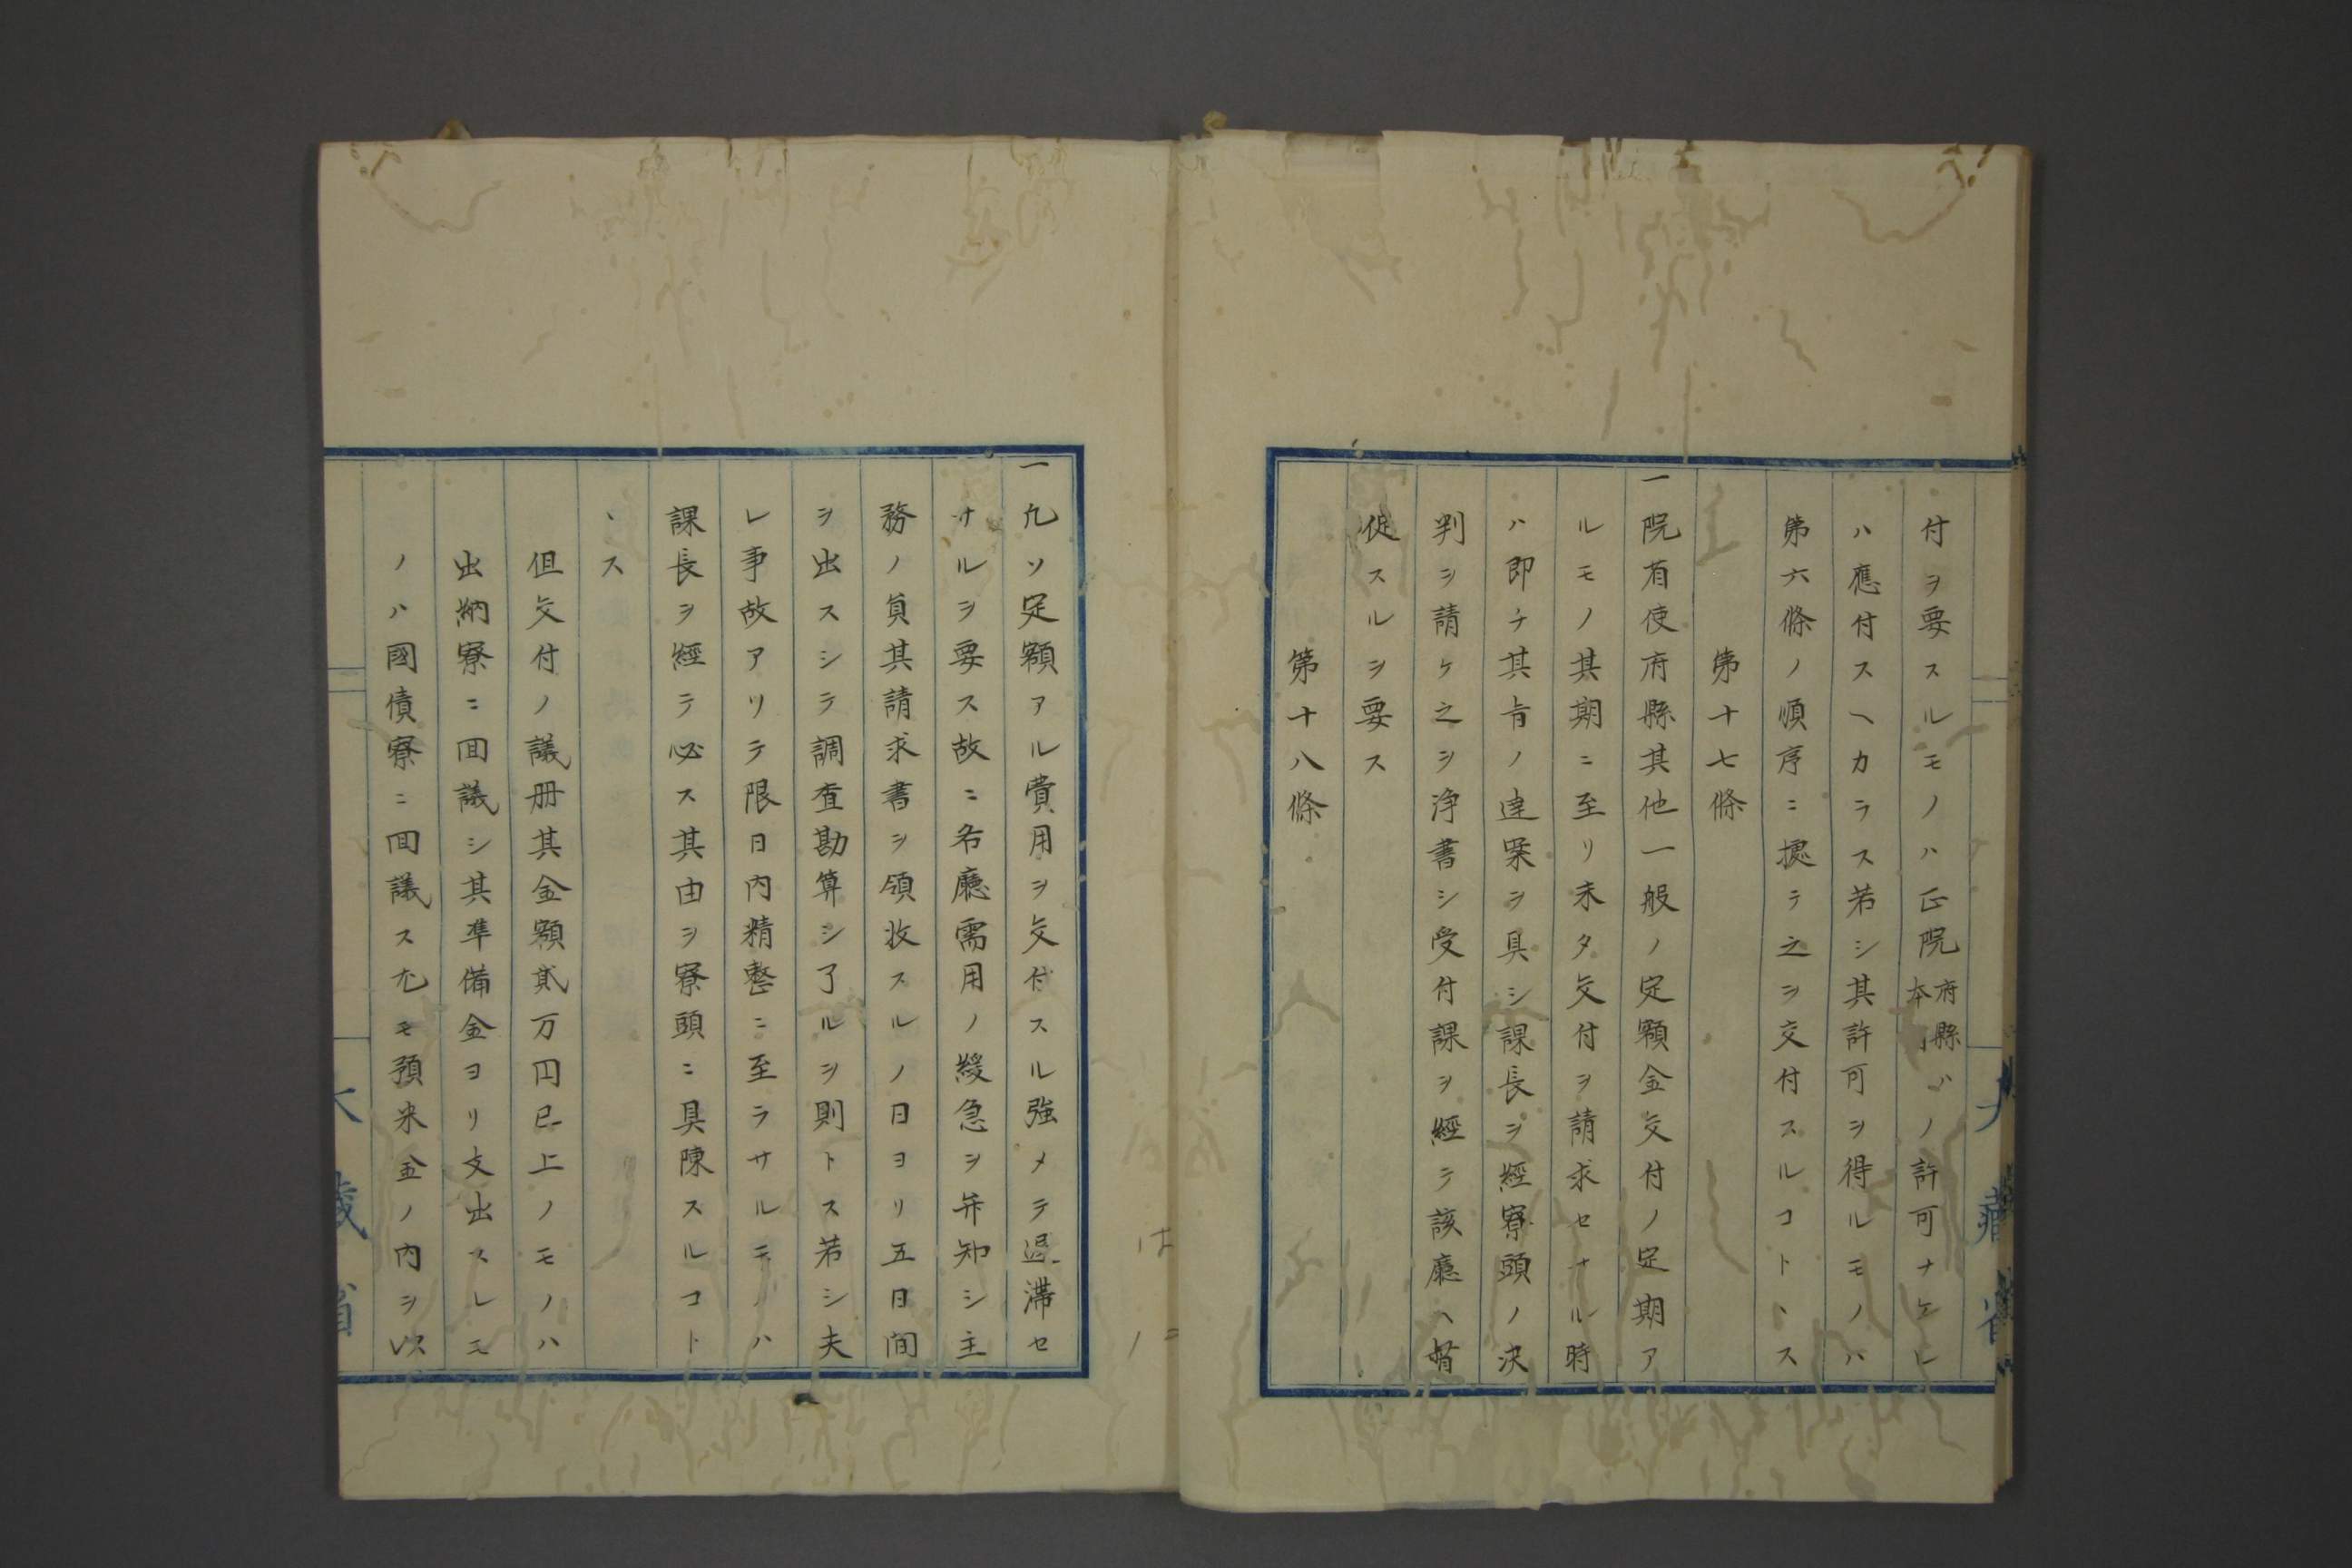 付ヲ要スルモノハ正院府縣ハ本ノ許可ナケレ
ハ應付スヘカラス若シ其許可ヲ得ルモノハ
第六條ノ順序ニ據テ之ヲ交付スルコトヽス
第十七條
一院省使府縣其他一般ノ定額金交付ノ定期ア
ルモノ其期ニ至リ未タ交付ヲ請求セサル時
ハ即チ其旨ノ達案ヲ具シ課長ヲ經寮頭ノ決
判ヲ請ケ之ヲ浄書シ受付課ヲ經テ該廳ヘ督
促スルヲ要ス
第十八條
一凢ソ定額アル費用ヲ交付スル強メテ遅滞セ
サルヲ要ス故ニ各廳需用ノ緩急ヲ弁知シ主
務ノ員其請求書ヲ領收スルノ日ヨリ五日間
ヲ出スシテ調査勘算シ了ルヲ則トス若シ夫
レ事故アリテ限日内精整ニ至ラサルモノハ
課長ヲ經テ必ス其由ヲ寮頭ニ具陳スルコト
ヽス
但交付ノ議册其金額貳万円已上ノモノハ
出納寮ニ囬議シ其準備金ヨリ支出スレモ
ノハ國債寮ニ囬議ス尤モ預米金ノ内ヲ以
大藏省
大藏省